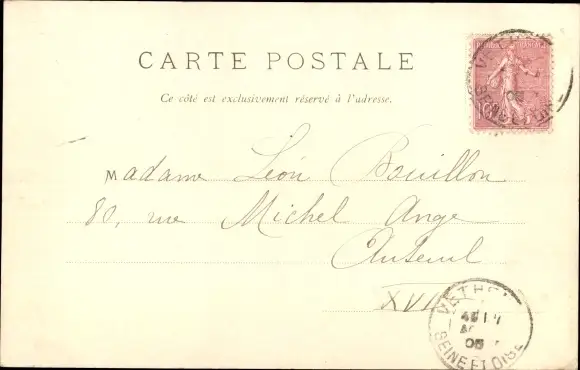 CARTE POSTALE
Ce côté est exclusivement réservé à l'adresse.
Madame Léon Bouillon
80, rue Michel Ange
Auteuil
XVI
SEINE ET OISE